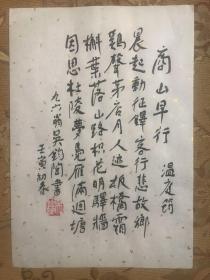 商山早行 温庭筠
晨起動征鐸客行悲故鄉
鷄聲茅店月人迹板橋霜
槲葉落山路枳花明驛牆
因思杜陵夢鳧雁滿迴塘
九六翁吴鈞陶書
壬寅初春